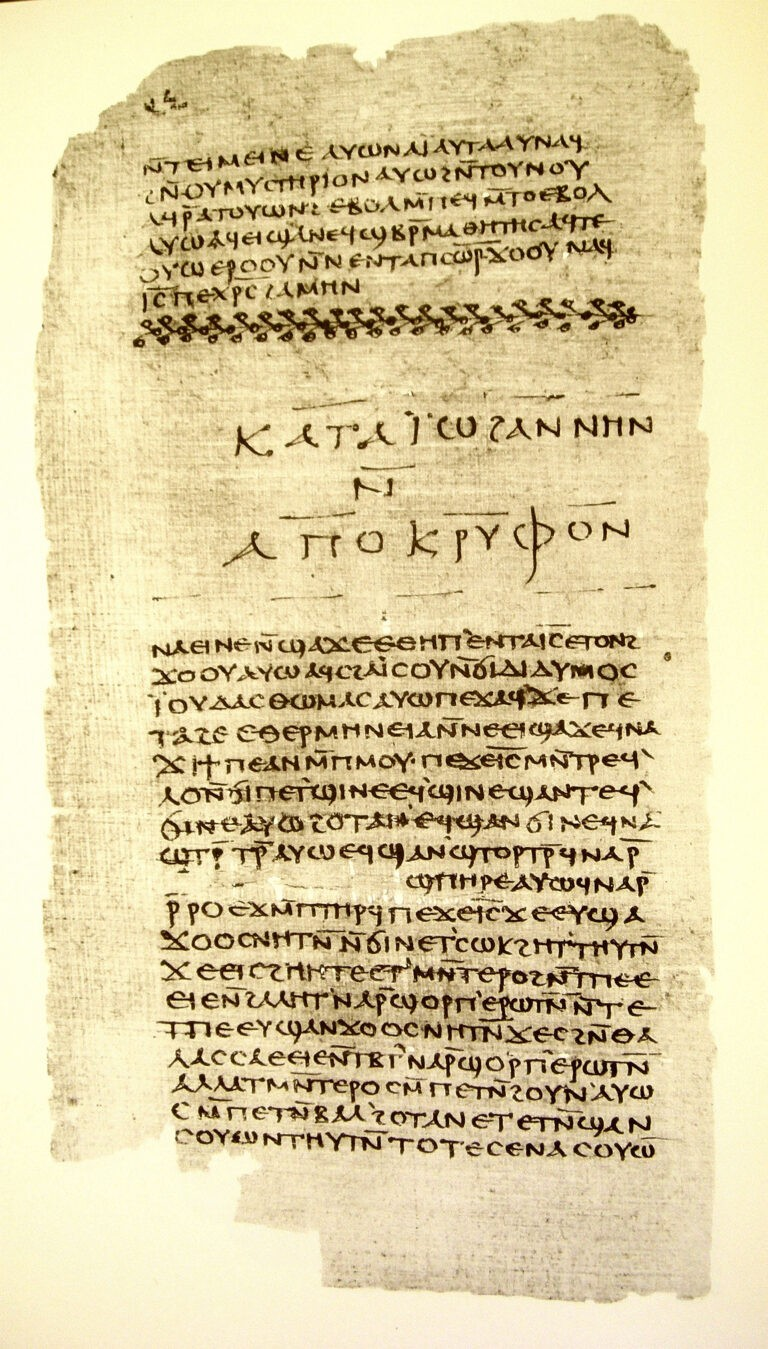 ⲛ̄ⲧⲉⲓⲙⲉⲓⲛⲉ ⲁⲩⲱ ⲛⲁⲓ̈ ⲁⲩⲧⲁⲁⲩ ⲛⲁϥ
ϩⲛ̄ ⲟⲩⲙⲩⲥⲧⲏⲣⲓⲟⲛ ⲁⲩⲱ ϩⲛ̄ ⲧⲟⲩⲛⲟⲩ
ⲁϥⲣ̄ⲁⲧⲟⲩⲱⲛϩ ⲉⲃⲟⲗ ⲙ̄ⲡⲉϥⲙ̄ⲧⲟ ⲉⲃⲟⲗ
ⲁⲩⲱ ⲁϥⲉⲓ ϣⲁ ⲛⲉϥϣⲃⲣ̄ⲙⲁⲑⲏⲧⲏⲥ ⲁϥⲧⲉ
ⲟⲩⲱ ⲉⲣⲟⲟⲩ ⲛ̄ⲛⲉⲛⲧⲁ ⲡⲥⲱ̄ⲣ̄ ϫⲟⲟⲩ ⲛⲁϥ
ⲓ̄ⲥ̄ ⲡⲉⲭ̄ⲣ̄ⲥ̄ ϩⲁⲙⲏⲛ
ⲕⲁⲧⲁ ⲓ̈ⲱϩⲁⲛⲛⲏⲛ
ⲛ̄
ⲁⲡⲟⲕⲣⲩⲫⲟⲛ
ⲛⲁⲉⲓ ⲛⲉ ⲛ̄ϣⲁϫⲉ ⲉⲑⲏⲡ ⲉⲛⲧⲁ ⲓ̄ⲥ̄ ⲉⲧⲟⲛϩ
ϫⲟⲟⲩ ⲁⲩⲱ ⲁϥⲥϩⲁⲓ̈ⲥⲟⲩ ⲛ̄ϭⲓ ⲇⲓⲇⲩⲙⲟⲥ
ⲓ̈ⲟⲩⲇⲁⲥ ⲑⲱⲙⲁⲥ ⲁⲩⲱ ⲡⲉϫⲁϥ ϫⲉ ⲡⲉ
ⲧⲁϩⲉ ⲉⲑⲉⲣⲙⲏⲛⲉⲓⲁ ⲛ̄ⲛⲉⲉⲓϣⲁϫⲉ ϥⲛⲁ
ϫⲓ ϯⲡⲉ ⲁⲛ ⲙ̄ⲡⲙⲟⲩ· ⲡⲉϫⲉ ⲓ̄ⲥ̄ ⲙⲛ̄ⲧⲣⲉϥ
ⲗⲟ ⲛ̄ϭⲓ ⲡⲉⲧϣⲓⲛⲉ ⲉϥϣⲓⲛⲉ ϣⲁⲛⲧⲉϥ
ϭⲓⲛⲉ ⲁⲩⲱ ϩⲟⲧⲁⲛ ⲉϥϣⲁⲛϭⲓⲛⲉ ϥⲛⲁ
ϣⲧⲣ̄ⲧⲣ̄ ⲁⲩⲱ ⲉϥϣⲁⲛϣⲧⲟⲣⲧⲣ̄ ϥⲛⲁⲣ̄
ϣⲡⲏⲣⲉ ⲁⲩⲱ ϥⲛⲁⲣ̄
ⲣ̄ⲣⲟ ⲉϫⲙ̄ ⲡⲧⲏⲣϥ ⲡⲉϫⲉ ⲓ̄ⲥ̄ ϫⲉ ⲉⲩϣⲁ
ϫⲟⲟⲥ ⲛⲏⲧⲛ̄ ⲛ̄ϭⲓ ⲛⲉⲧⲥⲱⲕ ϩⲏⲧ ⲧⲏⲩⲧⲛ̄
ϫⲉ ⲉⲓⲥϩⲏⲏⲧⲉ ⲉⲧⲙⲛ̄ⲧⲉⲣⲟ ϩⲛ̄ ⲧⲡⲉ ⲉ
ⲉⲓⲉ ⲛ̄ϩⲁⲗⲏⲧ ⲛⲁⲣ̄ ϣⲟⲣⲡ ⲉⲣⲱⲧⲛ̄ ⲛ̄ⲧⲉ
ⲧⲡⲉ ⲉⲩϣⲁⲛϫⲟⲟⲥ ⲛⲏⲧⲛ̄ ϫⲉ ⲥϩⲛ̄ ⲑⲁ
ⲗⲁⲥⲥⲁ ⲉⲉⲓⲉ ⲛ̄ⲧⲃⲧ ⲛⲁⲣ̄ ϣⲟⲣⲡ ⲉⲣⲱⲧⲛ̄
ⲁⲗⲗⲁ ⲧⲙⲛ̄ⲧⲉⲣⲟ ⲥⲙ̄ⲡⲉⲧⲛ̄ϩⲟⲩⲛ ⲁⲩⲱ
ⲥⲙ̄ⲡⲉⲧⲛ̄ⲃⲁⲗ ϩⲟⲧⲁⲛ ⲉⲧⲉⲧⲛ̄ϣⲁⲛ
ⲥⲟⲩⲱⲛ ⲧⲏⲩⲧⲛ̄ ⲧⲟⲧⲉ ⲥⲉⲛⲁⲥⲟⲩⲱ